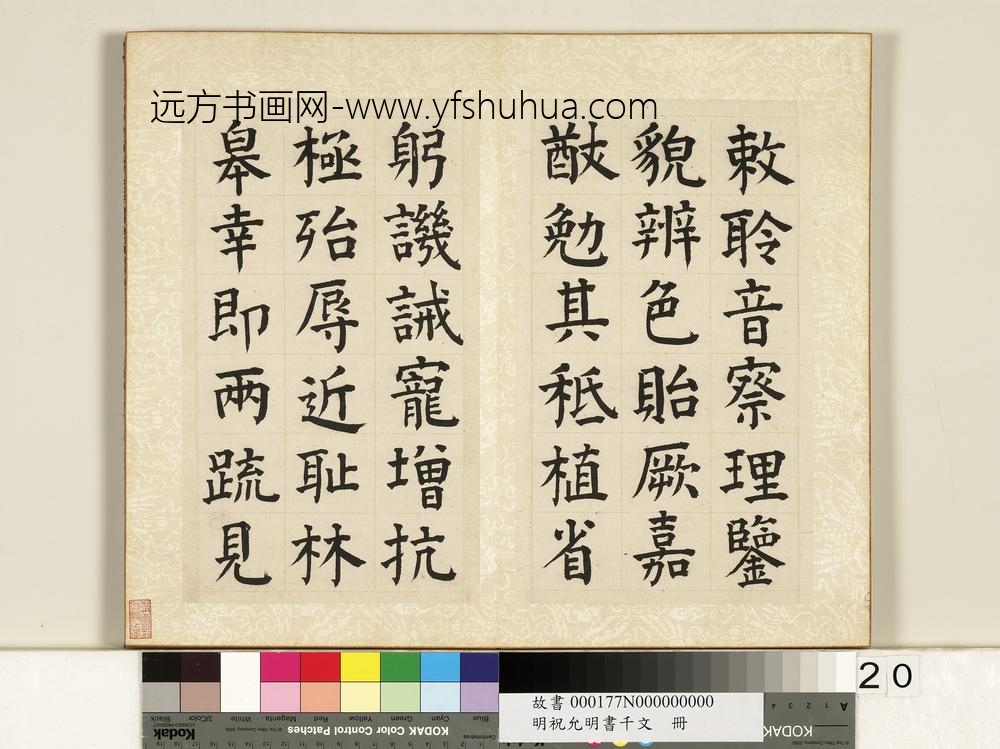 远方书画网-www.yfshuhua.com
敕聆音察理鑒
貌辨色貽厥嘉
猷勉其秪植省
躬譏誡寵增抗
極殆辱近耻林
皋幸即兩疏見
20
故書 000177N000000000
明祝允明書千文 冊
KODAK Color Control Patches
Kodak
LICENSED PRODUCT
Black
3/Color
White
Magenta
Red
Yellow
Green
Cyan
Blue
Centimetres
KODAK
A 1 2 3 4